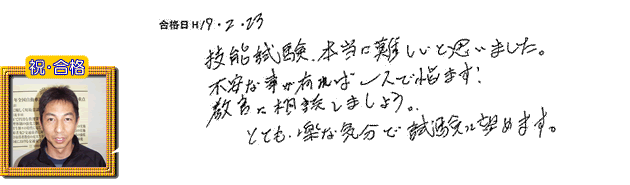 合格日 H19.2.23
技能試験、本当に難しいと思いました。
不安な事が有れば一人で悩まず!
教官に相談しましょう。
とても、楽な気分で試験に望めます。
祝・合格